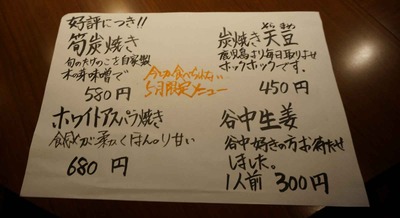 好評につき!!
筍炭焼き
旬のたけのこを自家製
木の芽味噌で
580円
炭焼き天豆
そら まめ
鹿児島より毎日取りよせ
ホックホックです。
450円
今しか食べられない
5月限定メニュー
ホワイトアスパラ焼き
が柔らかくほんのり甘い
680円
谷中生姜
谷中好きの方お待たせ
しました。
1人前 300円